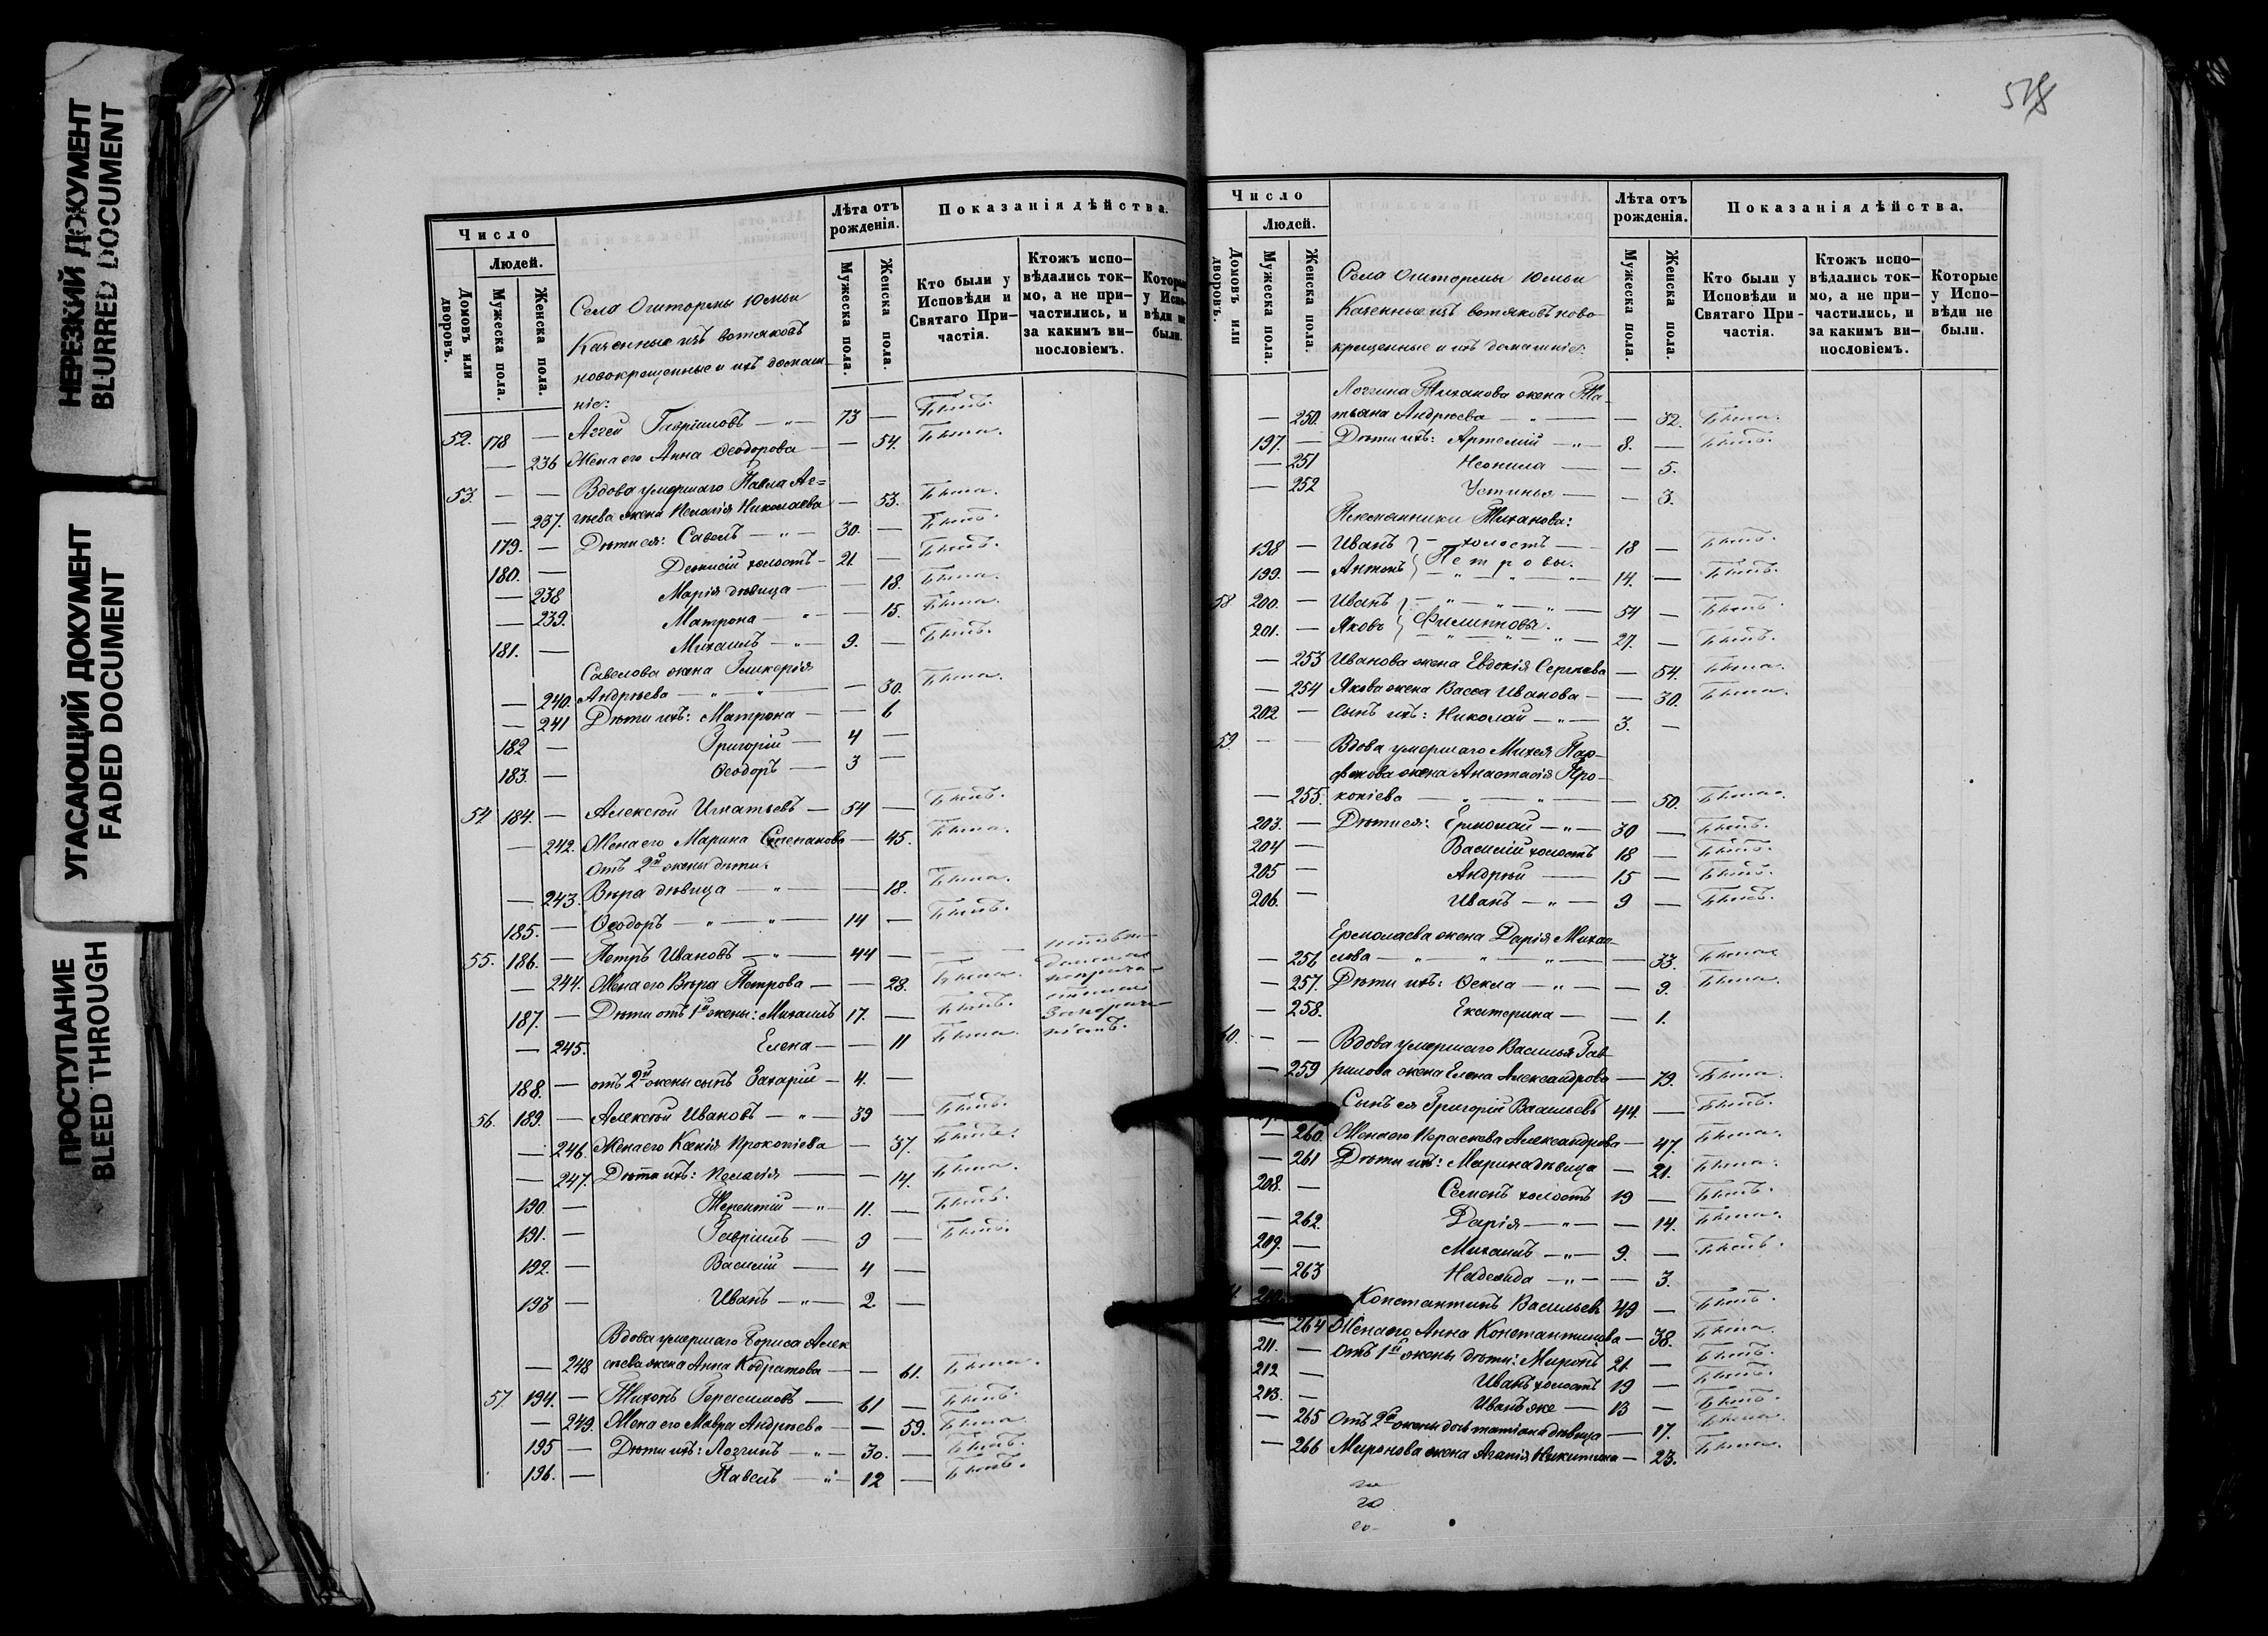 НЕРЕЗКИЙ ДОКУМЕНТ
BLURRED DOCUMENT
УГАСАЮЩИЙ ДОКУМЕНТ
FADED DOCUMENT
ПРОСТУПАНИЕ
BLEED THROUGH
Число
Людей.
Домовъ или дворовъ.
Мужеска пола.
Женска пола.
Села Юмьи
Казенные изъ вотяковъ
новокрещенные и ихъ домаш-
ніе:
Лѣта отъ рожденія.
Мужеска пола.
Женска пола.
Показанія дѣйства.
Кто были у Исповѣди и Святаго При-частія.
Ктожъ испо-вѣдались ток-мо, а не при-частились, и за какимъ ви-нословіемъ.
Которые у Испо-вѣди не были.
52. 178 — Аггей Гавріиловъ — „ — 73 — Былъ.
— 236 Жена его Анна Ѳеодорова — — 54. Была.
53. — — Вдова умершаго Павла Аг=
— 237. гѣева жена Пелагія Николаева — 53. Была.
179. — Дѣти ея: Савелъ — „ — 30. — Былъ.
180. — Діонисій холостъ — 21. — Былъ.
— 238 Марія дѣвица — — 18. Была.
— 239. Матрона — „ — — 15. Была.
181. — Михаилъ — „ — 9. — Былъ.
Савелова жена Гликерія
— 240. Андрѣева — „ — „ — — 30. Была.
— 241 Дѣти ихъ: Матрона — — 6
182 — Григорій — 4 —
183. — Ѳеодоръ — 3 —
54 184. — Алексѣй Игнатьевъ — 54 — Былъ.
— 242. Жена его Марина Степанова — 45. Была.
Отъ 2й жены дѣти:
— 243. Вѣра дѣвица — „ — — 18. Была.
185. — Ѳеодоръ — „ — „ — 14 — Былъ.
55. 186. — Петръ Ивановъ — „ — 44 — —
— 244. Жена его Вѣра Петрова — — 28. Была.
187. — Дѣти отъ 1й жены: Михаилъ 17. — Былъ.
— 245. Елена — — 11 Была.
188. — отъ 2й жены сынъ Захарій — 4. —
56. 189. — Алексѣй Ивановъ — „ — 39 — Былъ.
— 246. Жена его Ксенія Прокопіева — 37. Была.
— 247. Дѣти ихъ: Пелагія — — 14. Была.
190. — Терентій — „ — 11. — Былъ.
191. — Гавріилъ — 9 — Былъ.
192. — Василій — 4 —
193 — Иванъ — „ — 2 —
Вдова умершаго Бориса Алек
— 248 сѣева жена Анна Кодратова — — 61. Была.
57 194. — Тихонъ Герасимовъ — 61 — Былъ.
— 249. Жена его Мавра Андрѣева — — 59. Была
195 — Дѣти ихъ: Логгинъ — „ — 30. — Былъ.
196. — Павелъ — „ — 12 — Былъ.
Число
Людей.
Домовъ или дворовъ.
Мужеска пола.
Женска пола.
Села Юмьи
Казенные изъ вотяковъ ново-
крещенные и ихъ домашніе:
Лѣта отъ рожденія.
Мужеска пола.
Женска пола.
Показанія дѣйства.
Кто были у Исповѣди и Святаго При-частія.
Ктожъ испо-вѣдались ток-мо, а не при-частились, и за какимъ ви-нословіемъ.
Которые у Испо-вѣди не были.
Логгина Тиханова жена Та-
— 250. тьяна Андрѣева — „ — — 32. Была.
197. — Дѣти ихъ: Артемій — „ — 8. — Былъ.
— 251 Неонила — — 5.
— 252 Устинья — — 3.
Племянники Тиханова:
198 — Иванъ } — холостъ — 18 — Былъ.
Петровы.
199. — Антонъ } — „ — „ — „ — 14. — Былъ.
58 200. — Иванъ } — „ — „ — „ — 54 — Былъ.
Филипповы.
201. — Яковъ } — „ — „ — „ — 27. — Былъ.
— 253 Иванова жена Евдокія Сергѣева — 54. Была.
— 254 Якова жена Васса Иванова — — 30. Была.
202 — Сынъ ихъ: Николай — „ — 3. —
59. — — Вдова умершаго Михея Пар-
фенова жена Анастасія Про-
— 255. копіева — „ — „ — — 50. Была.
203. — Дѣти ея: Ермолай — „ — 30 — Былъ.
204 — Василій холостъ 18 — Былъ.
205 — Андрѣй — 15 — Былъ.
206. — Иванъ — „ — 9 — Былъ.
Ермолаева жена Дарія Михаи-
— 256 лова — „ — „ — „ — — 33. Была
— 257. Дѣти ихъ: Ѳекла — „ — — 9. Была.
— 258. Екатерина — — 1.
60. — — Вдова умершаго Василья Гав-
— 259 рилова жена Елена Александрова — 79. Была.
Сынъ ея Григорій Васильевъ 44. — Былъ.
— 260. Жена его Параскева Александрова — 47. Была.
— 261 Дѣти ихъ: Марина дѣвица — 21. Была.
208. — Семенъ холостъ 19 — Былъ.
— 262. Дарія — „ — — 14. Была.
209. — Михаилъ — „ — 9. — Былъ.
— 263 Надежда — „ — — 3.
Константинъ Васильевъ 49 — Былъ.
— 264 Жена его Анна Константинова — 38. Была.
211. — Отъ 1й жены дѣти: Миронъ 21. — Былъ.
212 — Иванъ холостъ 19 — Былъ.
213. — Иванъ же — 13 — Былъ.
— 265 Отъ 2й жены дочь татіана дѣвица — 17. Была.
— 266 Миронова жена Агапія Никитина — 23. Была.